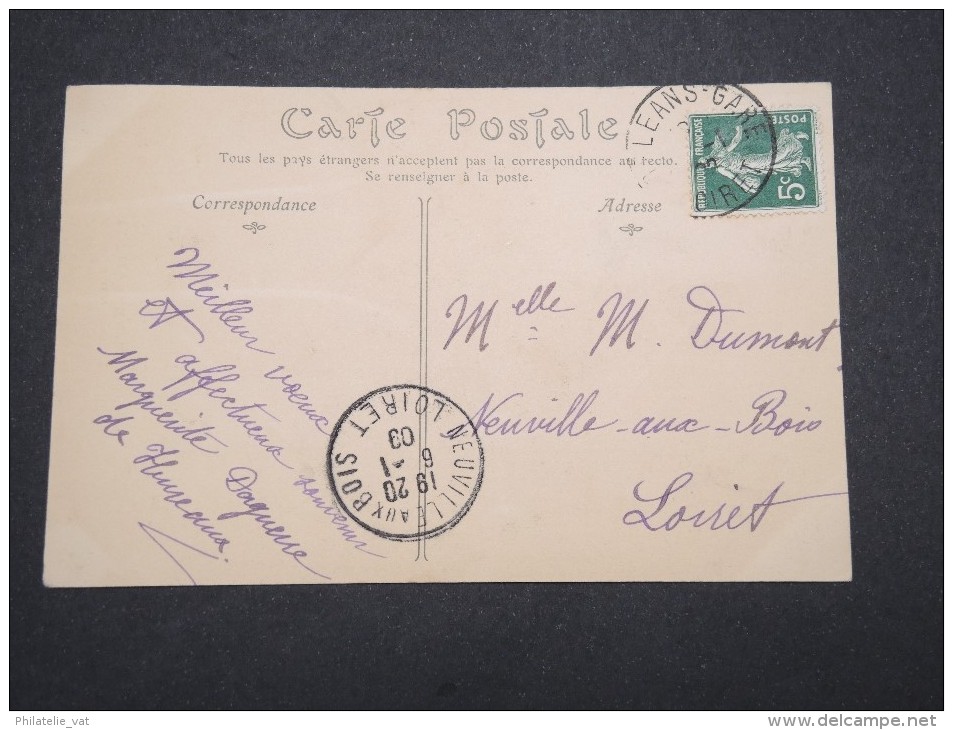 Carte Postale
Tous les pays étrangers n'acceptent pas la correspondance au recto.
Se renseigner à la poste.
Correspondance
Adresse
LEANS-GARE
IRET
REPUBLIQUE FRANÇAISE
POSTES
5c
Meilleurs voeux
et affectueux souvenir
Marguerite Daguerre
de
Melle M. Dumont
Neuville-aux-Bois
Loiret
NEUVILLE AUX BOIS
LOIRET
19 20
6 -1
09
Philatelie_vat
delcampe.net